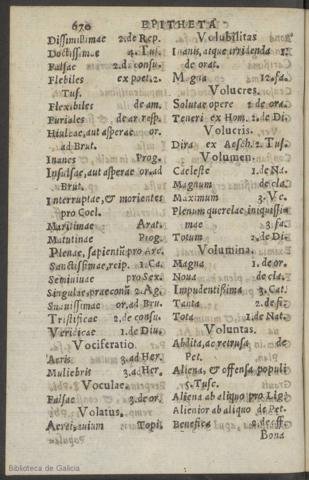 670 EPITHETA
Dissimillimae 2.de Rep.
Doctissimae 4. Tus.
Falsae 2.de consu.
Flebiles ex poet. 2.
Tus.
Flexibiles de am.
Furiales de ar resp.
Hiulcae, aut asperae or.
ad Brut.
Inanes Prog.
Insulsae, aut asperae or. ad
Brut.
Interruptae, & morientes
pro Coel.
Maritimae Arat.
Matutinae Prog.
Plenae, sapientũ pro Arc.
Sanctissimae, reip. 1. Ca.
Semiuiuae pro Sex.
Singulae, praeconũ 2. Ag.
Suauissimae or. ad Bru.
Tristificae 2. de consu.
Veridicae 1. de Diu.
Vociferatio.
Aeris 3. ad Her.
Muliebris 3. ad Her.
Voculae.
Falsae 3. de or.
Volatus.
Aerei, auium Topi.
Volubilitas
Inanis, atque irridenda 1.
de orat.
Magna 12. fa.
Volucres.
Solutae opere 2. de ora.
Teneri ex Hom. 2. de Di.
Volucris.
Dira ex Aesch. 2. Tus.
Volumen.
Caeleste 1. de Na.
Magnum de cla.
Maximum 3. Ve.
Plenum querelae iniquissi
mae 3. fa.
Totum 2. de Di.
Volumina.
Magna 1. de or.
Noua de cla.
Impudentissima 3. Cat.
Tanta 2. de fi.
Tota 1. de Nat.
Voluntas.
Abdita, ac retrusa de
Pet.
Aliena, & offensa populi
5. Tusc.
Aliena ab aliquo pro Lig.
Alienior ab aliquo de Pet.
Benefica 2. de off.
Bona
Biblioteca de Galicia